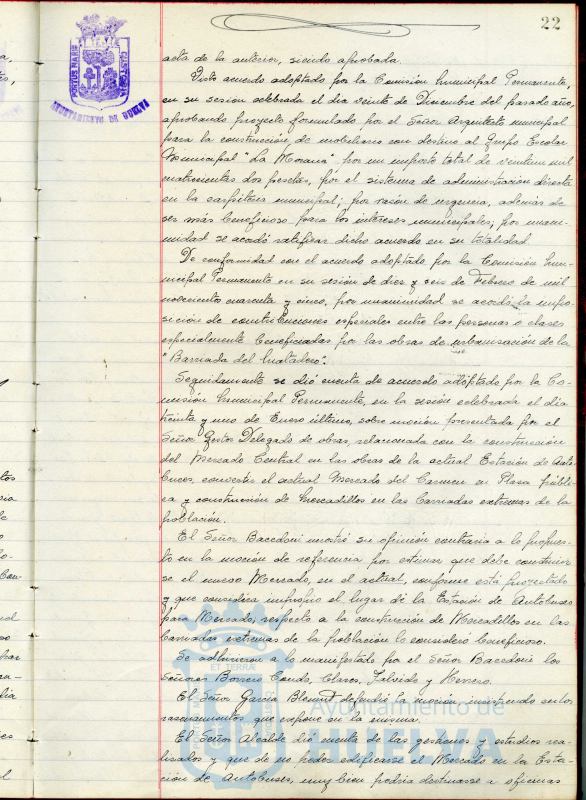 22
PORTUS MARIS
AYUNTAMIENTO DE HUELVA
acta de la anterior, siendo aprobada.
Visto acuerdo adoptado por la Comisión Municipal Permanente,
en su sesión celebrada el día veinte de Diciembre del pasado año,
aprobando proyecto formulado por el Señor Arquitecto municipal
para la construcción de mobiliario con destino al Grupo Escolar
Municipal "La Morana" por un importe total de veintiun mil
cuatrocientas dos pesetas, por el sistema de administración directa
en la carpintería municipal; por razón de urgencia, además de
ser más beneficioso para los intereses municipales; por unani-
midad se acordó ratificar dicho acuerdo en su totalidad.
De conformidad con el acuerdo adoptado por la Comisión Mu-
nicipal Permanente en su sesión de diez y seis de Febrero de mil
novecientos cuarenta y cinco, por unanimidad se acordó la impo
sición de contribuciones especiales entre las personas o clases
especialmente beneficiadas por las obras de urbanización de la
"Barriada del Matadero".
Seguidamente se dió cuenta de acuerdo adoptado por la Co-
misión Municipal Permanente, en la sesión celebrada el día
treinta y uno de Enero último, sobre moción presentada por el
Señor Gestor Delegado de obras, relacionada con la construcción
del Mercado Central en las obras de la actual Estación de Auto-
buses, convertir el actual Mercado del Carmen en Plaza públi-
ca y construcción de Mercadillos en las barriadas extremas de la
población.
El Señor Bacedoni mostró su opinión contraria a lo propues-
to en la moción de referencia por estimar que debe construir
se el nuevo Mercado, en el actual, conforme está proyectado
y que considera impropio el lugar de la Estación de Autobuses
para Mercado, respecto a la construcción de Mercadillos en las
barriadas extremas de la población lo consideró beneficioso.
Se adhirieron a lo manifestado por el Señor Bacedoni los
Señores Borrero Conde, Claros, Salvido y Herrero.
El Señor García defendió la moción, insistiendo en los
razonamientos que expone en la misma.
El Señor Alcalde dió cuenta de las gestiones y estudios rea-
lizados y que de no poder edificarse el Mercado en la Esta-
ción de Autobuses, muy bien podría destinarse a oficinas
ET TERRA
Ayuntamiento de
HUELVA